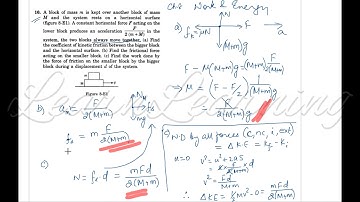 10. A block of mass m is kept over another block of mass
M and the system rests on a horizontal surface
(figure 8-E1). A constant horizontal force F acting on the
lower block produces an acceleration F/2(m+M) in the
system, the two blocks always move together. (a) Find
the coefficient of kinetic friction between the bigger block
and the horizontal surface. (b) Find the frictional force
acting on the smaller block. (c) Find the work done by
the force of friction on the smaller block by the bigger
block during a displacement d of the system.
Figure 8-E1
Work & Energy
a)
N
F
a
(M+m)g
F - μ(M+m)g = (M+m) F/2(M+m)
μ = (F - F/2) 1/(M+m)g
= F/2(M+m)g
b)
= m F/2(M+m)
c)
W = fs.d = mFd/2(M+m)
W.D by all forces (c, nc, i, ext)
= ΔKE = kf - ki
u=0 v² = u² + 2as
v² = Fd/M+m
∴ ΔKE = ½mv² - 0 = mFd/2(M+m)